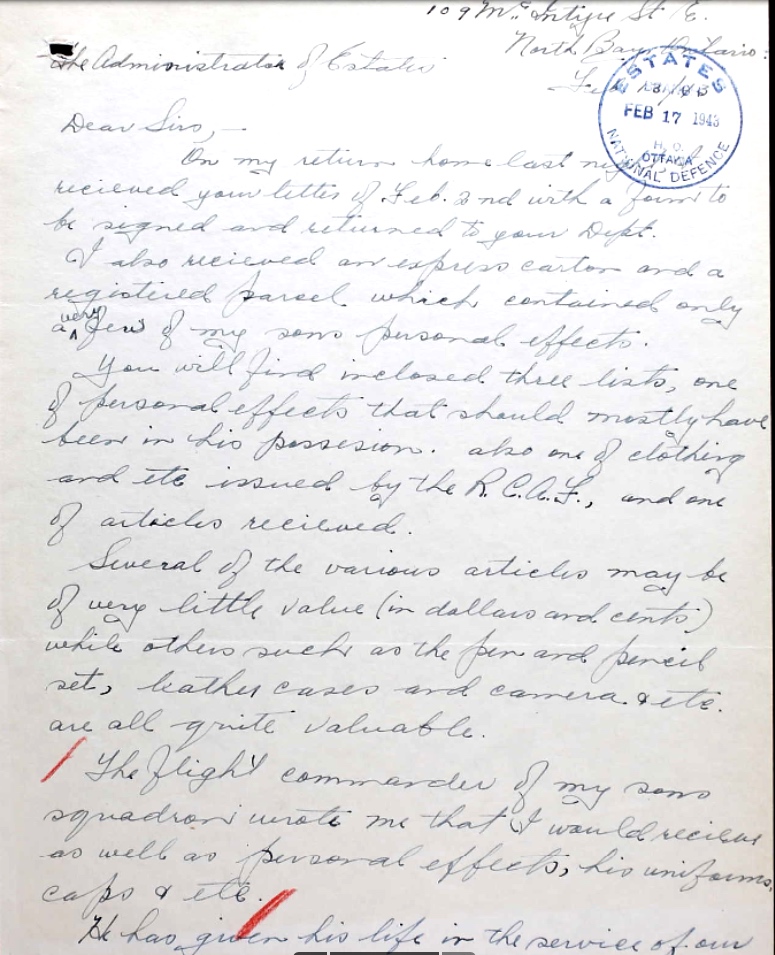 109 McIntyre St E.
North Bay, Ontario.
The Administrator of Estates
Dear Sirs, —
On my return home last
recieved your letter of Feb. 2nd with a form to
be signed and returned to your Dept.
I also recieved an express carton and a
registired parsel which contained only
a very few of my sons personal effects.
You will find inclosed three lists, one
of personal effects that should mostly have
been in his possesion. also one of clothing
and etc issued by the R.C.A.F., and one
of articles recieved.
Several of the various articles may be
of very little value (in dollars and cents)
while others such as the pen and pencil
set, leather cases and camera & etc.
are all quite valuable.
The flight commander of my sons
squadron wrote me that I would recieve
as well as personal effects, his uniforms,
caps & etc.
He has given his life in the service of our
ESTATES
FEB 17 1943
H. Q.
OTTAWA
NATIONAL DEFENCE